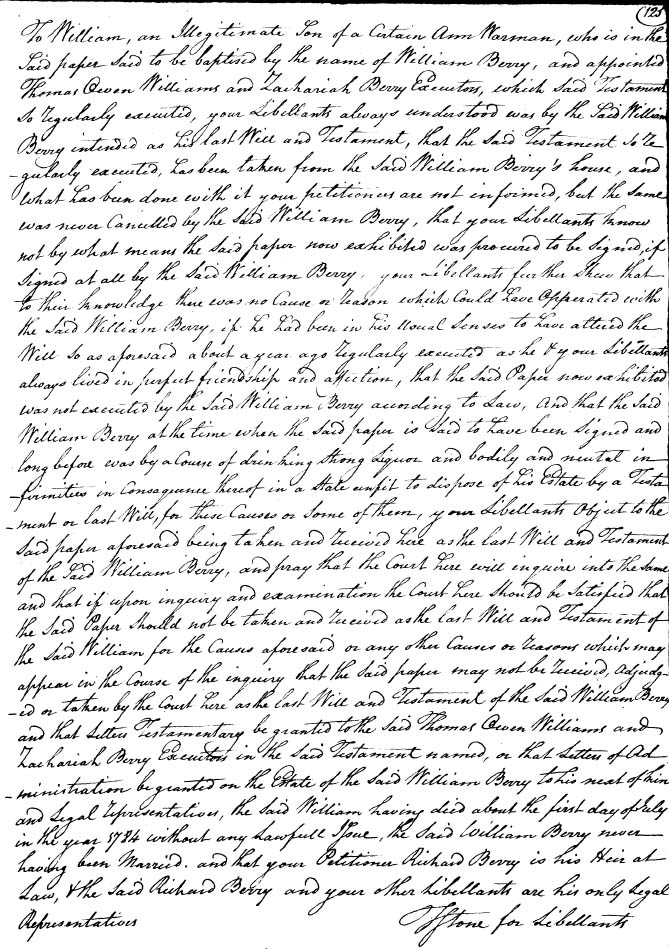 (125
To William, an Illegitimate Son of a Certain Ann Warman, who is in the
said paper said to be baptised by the name of William Berry, and appointed
Thomas Owen Williams and Zachariah Berry Executors, which said Testament
so regularly executed, your Libellants always understood was by the said William
Berry intended as his last Will and Testament, that the said Testament so re
-gularly executed, has been taken from the said William Berry's house, and
what has been done with it your petitioners are not informed, but the same
was never Cancelled by the said William Berry, that your Libellants know
not by what means the said paper now exhibited was procured to be signed, if
signed at all by the said William Berry, your Libellants further shew that
to their knowledge there was no Cause or reason which Could have Opperated with
the said William Berry, if he had been in his usual senses to have altered the
Will so as aforesaid about a year ago regularly executed as he & your Libellants
always lived in perfect friendship and affection, that the said Paper now exhibited
was not executed by the said William Berry according to Law, And that the said
William Berry at the time when the said paper is said to have been signed and
long before was by a Course of drinking strong Liquor and bodily and mental in
-firmities in Consequence thereof in a State unfit to dispose of his Estate by a Testa
-ment or last Will, for these Causes or some of them, your Libellants Object to the
said paper aforesaid being taken and received here as the last Will and Testament
of the said William Berry, and pray that the Court here will inquire into the same
and that if upon inquiry and examination the Court here should be satisfied that
the said Paper should not be taken and received as the last Will and Testament of
the said William for the Causes aforesaid or any other Causes or reasons which may
appear in the Course of the inquiry that the said paper may not be received, adjudg-
-ed or taken by the Court here as the last Will and Testament of the said William Berry
and that Letters Testamentary be granted to the said Thomas Owen Williams and
Zachariah Berry Executors in the said Testament named, or that Letters of Ad
-ministration be granted on the Estate of the said William Berry to his next of kin
and Legal representatives, the said William having died about the first day of July
in the year 1784 without any Lawfull Issue, the said William Berry never
having been Married. and that your Petitioner Richard Berry is his Heir at
Law, & the said Richard Berry and your other Libellants are his only Legal
Representatives
Stone for Libellants